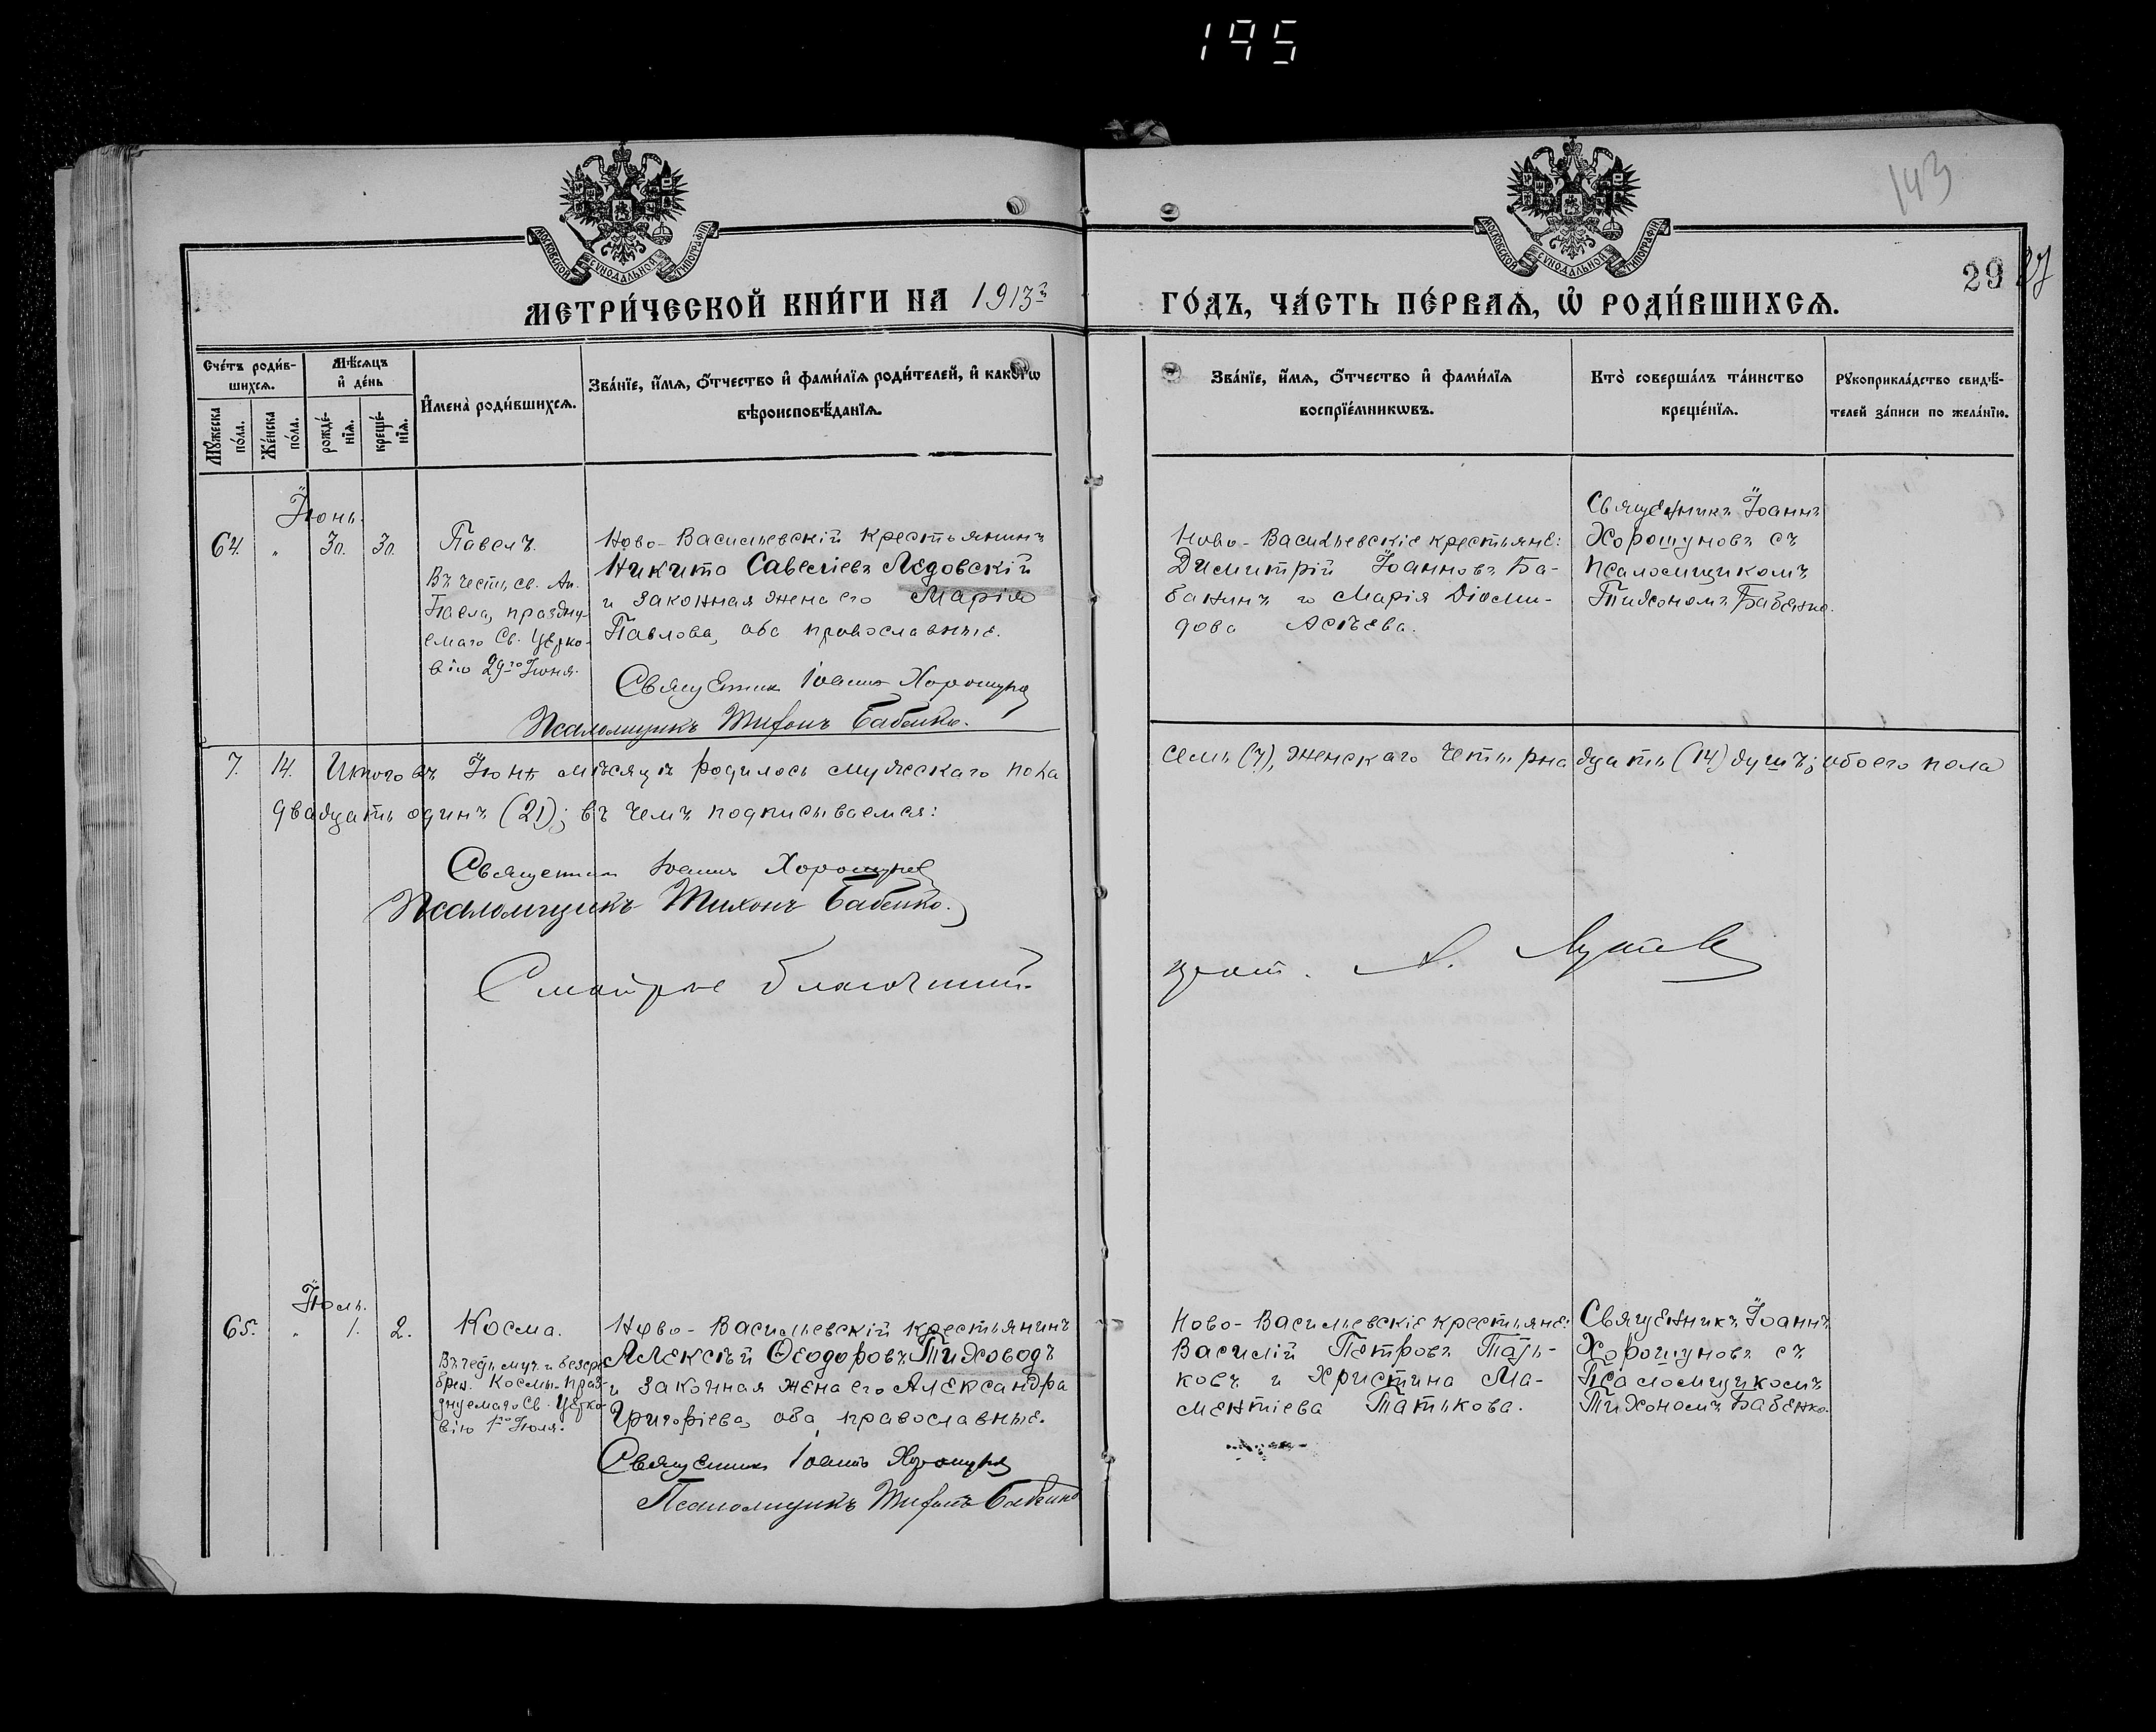 195
143
МОСКОВСКОЙ СУНОДАЛЬНОЙ ТИПОГРАФІИ
МОСКОВСКОЙ СУНОДАЛЬНОЙ ТИПОГРАФІИ
29 27
МЕТРИ́ЧЕСКОЙ КНИ́ГИ НА 1913
ГО́ДЪ, ЧА́СТЬ ПЕ́РВАѦ, Ѡ҆ РОДИ́ВШИХСѦ.
Сче́тъ роди́в-
шихсѧ.
Мꙋ́жеска по́ла.
Же́нска по́ла.
Мѣ́сѧцъ и҆ де́нь
рожде́-нїѧ.
креще́-нїѧ.
И҆мена̀ роди́вшихсѧ.
Зва́нїе, и҆́мѧ, ѻ҆́тчество и҆ фами́лїѧ роди́телей, и҆ како́гѡ
вѣроисповѣ́данїѧ.
Зва́нїе, и҆́мѧ, ѻ҆́тчество и҆ фами́лїѧ
воспрїе́мникѡвъ.
Кто̀ соверша́лъ та́инство
креще́нїѧ.
Рꙋкоприкла́дство свидѣ́-
телей за́писи по жела́нїю.
Іюнь.
64. " 30. 30. Павелъ.
Въ честь св. Ап.
Павла, праздну-
емаго Св. Церко-
вію 29го Іюня.
Ново-Васильевскій крестьянинъ
Никита Савеліевъ Ледовскій
и законная жена его Марія
Павлова, оба православные.
Священникъ Іоаннъ Хорошуновъ
Псаломщикъ Тихонъ Бабенко.
Ново-Васильевскіе крестьяне:
Димитрій Іоанновъ Ба-
банинъ и Марія Діоми-
дова Асѣева.
Священникъ Іоаннъ
Хорошуновъ съ
псаломщикомъ
Тихономъ Бабенко.
7. 14. Итого въ Іюнѣ мѣсяцѣ родилось мужескаго пола
семь (7), женскаго четырнадцать (14) душъ; обоего пола
двадцать одинъ (21); въ чемъ подписываемся:
Священникъ Іоаннъ Хорошуновъ
Псаломщикъ Тихонъ Бабенко.
Смотрѣлъ благочинный
прот. А.
Іюль.
65. " 1. 2. Косма.
Въ честь муч. и безсре-
брен. Космы, праз-
днуемаго Св. Церко-
вію 1го Іюля.
Ново-Васильевскій крестьянинъ
Алексѣй Ѳеодоровъ Тиховодъ
и законная жена его Александра
Григоріева, оба православные.
Священникъ Іоаннъ Хорошуновъ
Псаломщикъ Тихонъ Бабенко
Ново-Васильевскіе крестьяне:
Василій Петровъ Тать-
ковъ и Христина Ма-
ментіева Татькова.
Священникъ Іоаннъ
Хорошуновъ съ
Псаломщикомъ
Тихономъ Бабенко.